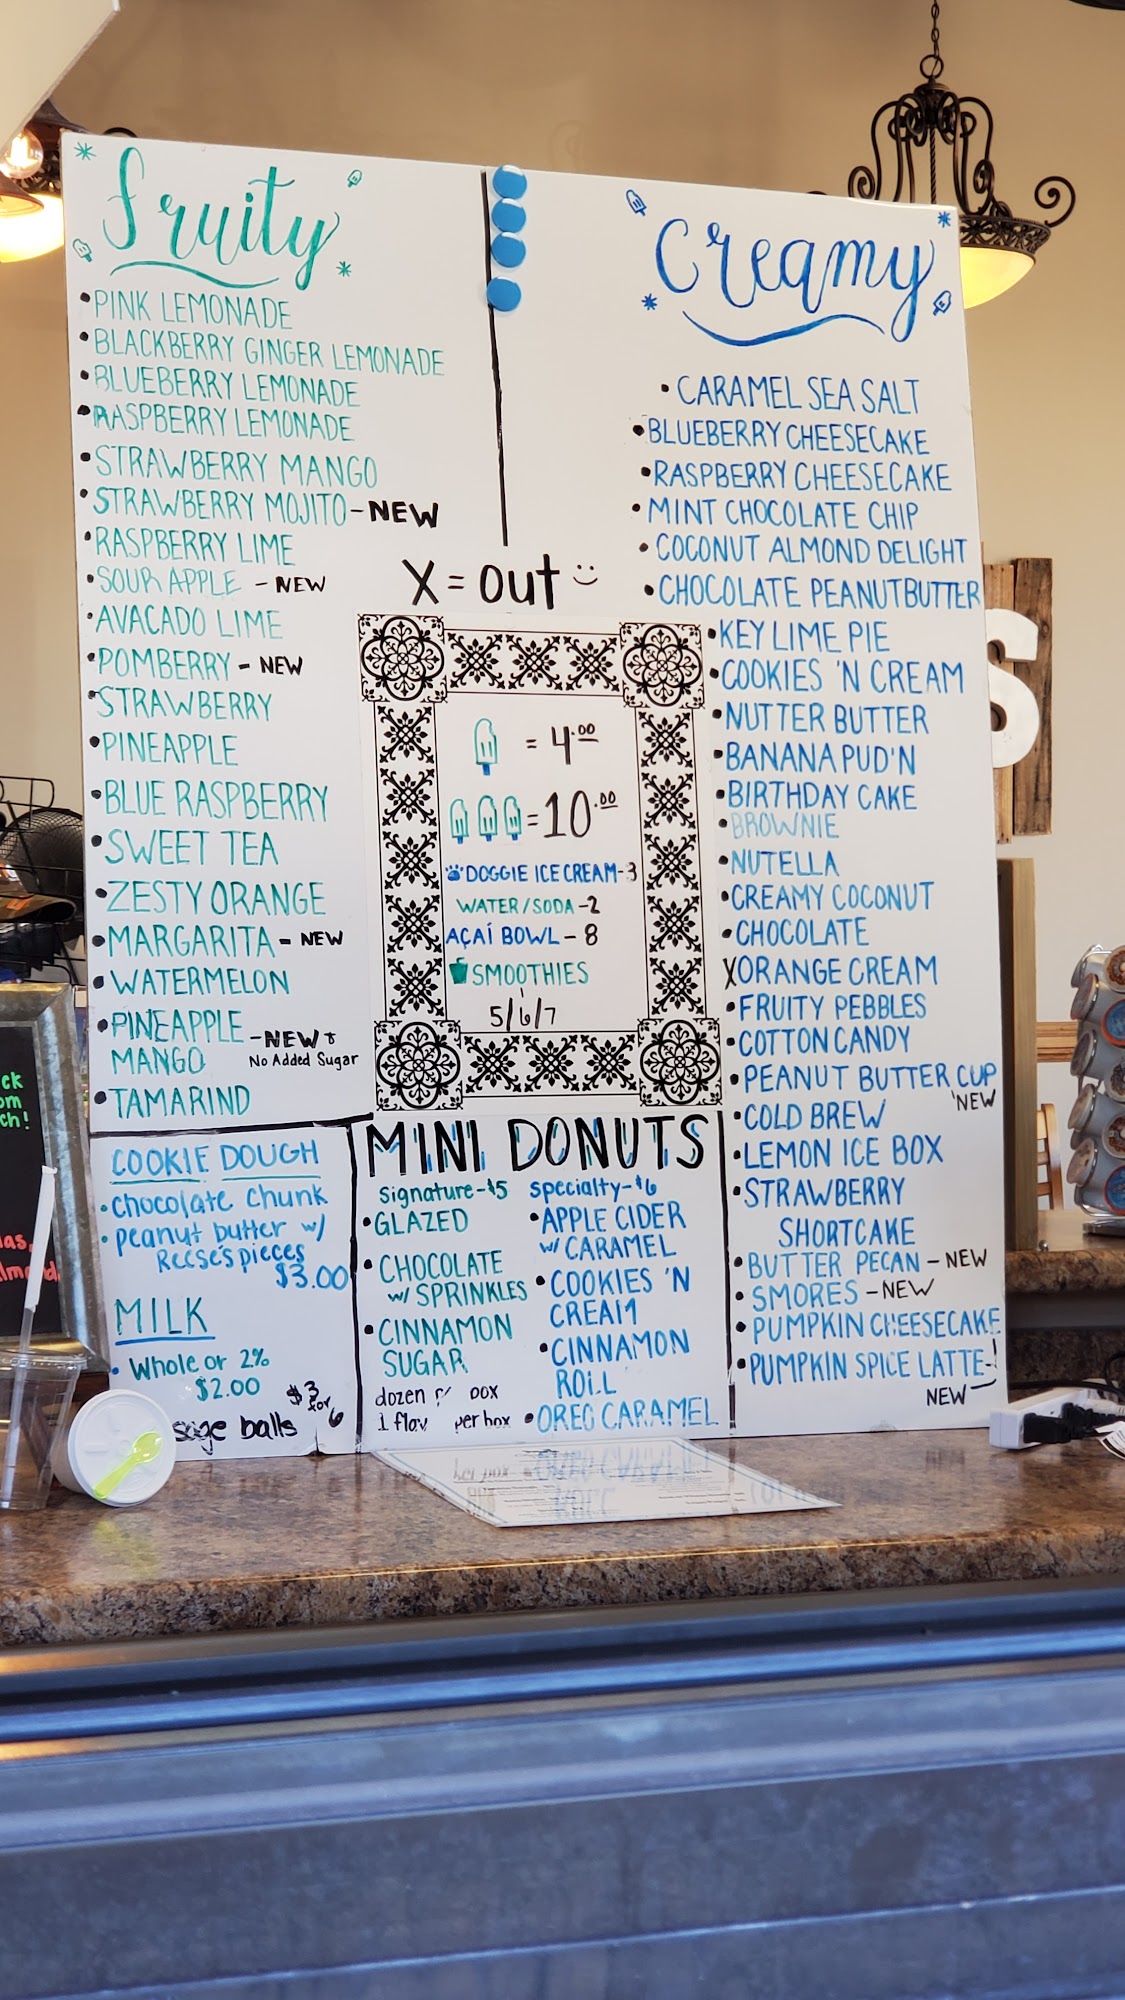 Fruity
• PINK LEMONADE
• BLACKBERRY GINGER LEMONADE
• BLUEBERRY LEMONADE
• RASPBERRY LEMONADE
• STRAWBERRY MANGO
• STRAWBERRY MOJITO - NEW
• RASPBERRY LIME
• SOUR APPLE - NEW
• AVACADO LIME
• POMBERRY - NEW
• STRAWBERRY
• PINEAPPLE
• BLUE RASPBERRY
• SWEET TEA
• ZESTY ORANGE
• MARGARITA - NEW
• WATERMELON
• PINEAPPLE - NEW +
MANGO No Added Sugar
• TAMARIND
X = out
= 4.00
= 10.00
DOGGIE ICE CREAM - 3
WATER/SODA - 2
AÇAÍ BOWL - 8
SMOOTHIES
5/6/7
Creamy
• CARAMEL SEA SALT
• BLUEBERRY CHEESECAKE
• RASPBERRY CHEESECAKE
• MINT CHOCOLATE CHIP
• COCONUT ALMOND DELIGHT
• CHOCOLATE PEANUTBUTTER
• KEY LIME PIE
• COOKIES 'N CREAM
• NUTTER BUTTER
• BANANA PUD'N
• BIRTHDAY CAKE
• BROWNIE
• NUTELLA
• CREAMY COCONUT
• CHOCOLATE
X ORANGE CREAM
• FRUITY PEBBLES
• COTTON CANDY
• PEANUT BUTTER CUP
NEW
• COLD BREW
• LEMON ICE BOX
• STRAWBERRY
SHORTCAKE
• BUTTER PECAN - NEW
• SMORES - NEW
• PUMPKIN CHEESECAKE
• PUMPKIN SPICE LATTE-!
NEW
COOKIE DOUGH
• Chocolate Chunk
• peanut butter w/
Reese's pieces
$3.00
MILK
• Whole or 2%
$2.00
$3
for
6
sage balls
MINI DONUTS
signature-$5
• GLAZED
• CHOCOLATE
w/ SPRINKLES
• CINNAMON
SUGAR
dozen
1 flav per box
specialty-$6
• APPLE CIDER
w/ CARAMEL
• COOKIES 'N
CREAM
• CINNAMON
ROLL
• OREO CARAMEL
S
ck
om
ch!
as,
lmond